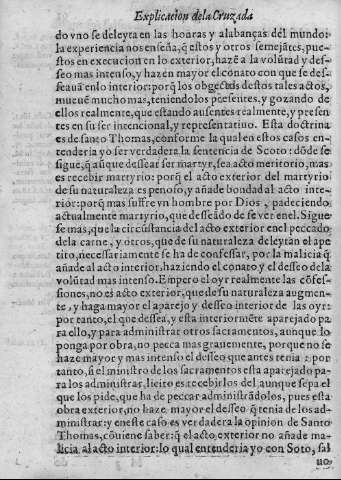 Explicacion dela Cruzada
do vno se deleyta en las honras y alabanças del mundo:
la experiencia nos enseña, q̃ estos y otros semejãtes, pue-
stos en execucion en lo exterior, hazẽ a la volũtad y des-
seo mas intenso, y hazen mayor el conato con que se des-
seauã enlo interior: porq̃ los obgectus destos tales actos,
mueuẽ mucho mas, teniendolos presentes, y gozando de
ellos realmente, que estando ausentes realmente, y presen
tes en su ser intencional, y representatiuo. Esta doctrina
es de sancto Thomas, conforme la qual en estos casos en-
tenderia yo ser verdadera la sentencia de Scoto: dõde se
sigue, q̃ auque dessear ser martyr, sea acto meritorio, mas
es recebir martyrio: porq̃ el acto exterior del martyrio
de su naturaleza es penoso, y añade bondad al acto inte-
rior: porq̃ mas suffre vn hombre por Dios, padeciendo
actualmente martyrio, que desseãdo de se ver enel. Sigue
se mas, que la circũstancia del acto exterior enel peccado
de la carne, y otros, que de su naturaleza deleytan el ape
tito, necessariamente se ha de confessar, por la malicia q̃
añade al acto interior, haziendo el conato y el desseo dela
volũtad mas intenso. Empero el oyr realmente las cõfes-
siones, no es acto exterior, que de su naturaleza augmen-
te, y haga mayor el aparejo y desseo interior de las oyr:
por tanto, el que dessea, y esta interiormẽte aparejado pa
ra ello, y para administrar otros sacramentos, aunque lo
ponga por obra, no pecca mas grauemente, porque no se
haze mayor y mas intenso el desseo que antes tenia: por
tanto, si el ministro de los sacramentos esta aparejado pa-
ra los administrar, licito es recebirlos del aunque sepa el
que los pide, que ha de peccar administrãdolos, pues esta
obra exterior, no haze mayor el desseo q̃ tenia de los ad-
ministrar: y eneste caso es verdadera la opinion de Santo
Thomas, cõuiene saber: q̃ el acto exterior no añade ma-
licia al acto interior: lo qual entenderia yo con Soto, sal
uo,